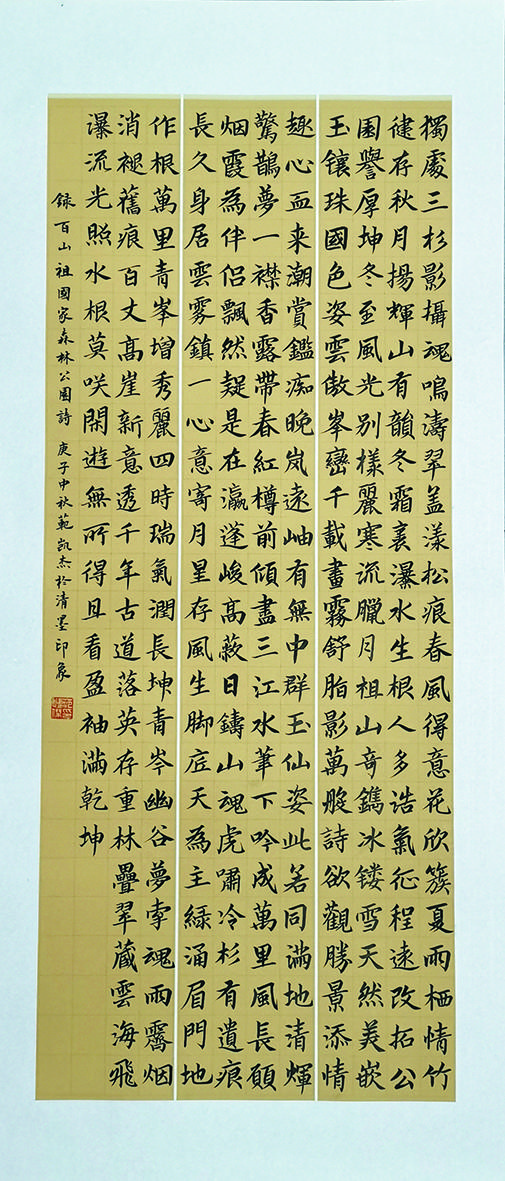 獨處三杉影攝魂鳴濤翠盖漾松痕春風得意花欣簇夏雨栖情竹
健存秋月揚輝山有韻冬霜裹瀑水生根人多浩氣征程遠改拓公
園譽厚坤冬至風光别樣麗寒流臘月祖山奇鐫冰镂雪天然美嵌
玉镶珠國色姿雲傲峯巒千載畫霧舒脂影萬般詩欲觀勝景添情
趣心血来潮賞鑑痴晚岚遠岫有無中群玉仙姿此若同满地清輝
驚鵲夢一襟香露帶春紅樽前傾盡三江水筆下吟成萬里風長願
烟霞為伴侣飄然疑是在瀛蓬峻髙蔽日鑄山魂虎嘯冷杉有遺痕
長久身居雲雾鎮一心意寄月星存風生脚底天為主緑涌眉門地
作根萬里青峯增秀麗四時瑞氣潤長坤青岑幽谷夢牽魂雨霽烟
消褪舊痕百丈髙崖新意透千年古道落英存重林疊翠蔵雲海飛
瀑流光照水根莫咲閑遊無所得且看盈袖滿乾坤
録百山祖國家森林公園詩 庚子中秋範凱杰於清墨印象